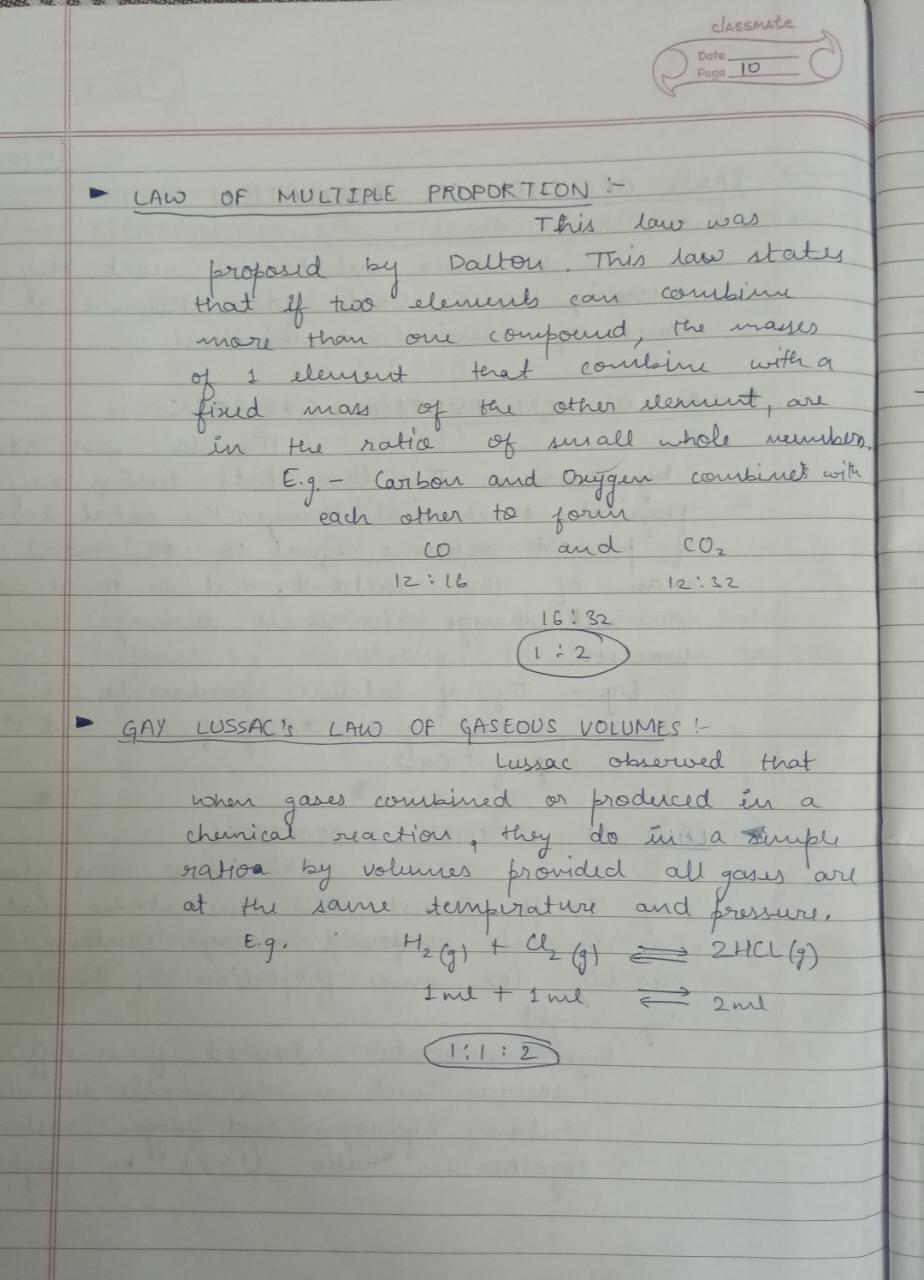 classmate
Date
Page 10
LAW OF MULTIPLE PROPORTION :-
This law was
proposed by Dalton. This law states
that if two elements can combine
more than one compound, the masses
of 1 element that combine with a
fixed mass of the other element, are
in the ratio of small whole numbers.
E.g. - Carbon and Oxygen combines with
each other to form
CO and CO₂
12 : 16 12 : 32
16 : 32
1 : 2
GAY LUSSAC's LAW OF GASEOUS VOLUMES :-
Lussac observed that
when gases combined or produced in a
chemical reaction, they do in a simple
ratio by volumes provided all gases are
at the same temperature and pressure.
E.g. H₂(g) + Cl₂(g) ⇌ 2HCL(g)
1ml + 1ml ⇌ 2ml
1:1:2